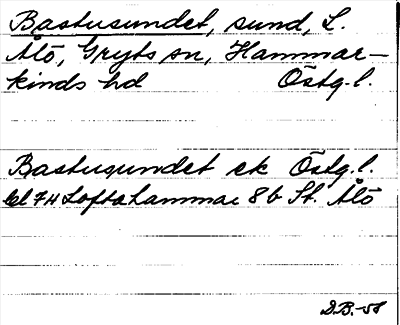 Bastusundet, sund, L.
Ålö, Gryts sn, Hammar-
kinds hd Östg. l.
Bastusundet ek Östg. l.
bl 74 Loftahammar 8b St. Ålö
D.B.-58